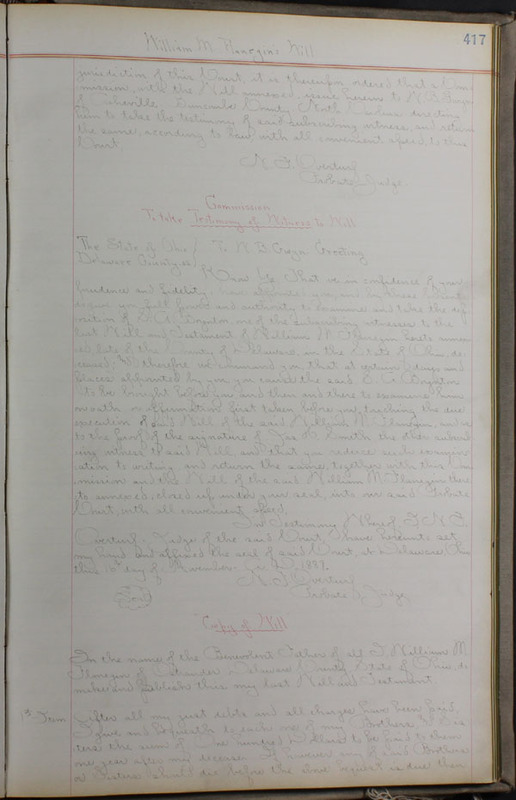 417
William M. Flanegins Will
jurisdiction of this Court, it is therefore ordered that a Com-
mission, with the Will annexed, issue herein to N. B. Gwyn
of Asheville, Buncombe County, North Carolina directing
him to take the testimony of said subscribing witness, and return
the same, according to law, with all convenient speed, to this
Court.
N. F. Overturf
Probate Judge.
Commission
To take Testimony of Witness to Will
The State of Ohio } To N. B. Gwyn Greeting
Delaware County, ss }
Know Ye That we in confidence of your
prudence and fidelity, have appointed you, and by these presents
do give you full power and authority to examine and take the dep-
osition of E. A. Boynton, one of the subscribing witnesses to the
last Will and Testament of William M. Flanegin hereto annex-
ed, late of the County of Delaware, in the State of Ohio, de-
ceased, and therefore we command you, that at certain days and
places appointed by you you cause the said E. A. Boynton
to be brought before you and then and there to examine him
on oath or affirmation first taken before you touching the due
execution of said Will of the said William M. Flanegin, and as
to the proof of the signature of Jas. R. Smith the other subscrib-
ing witness to said Will and that you reduce such examin-
ation to writing and return the same, together with this Com-
mission and the Will of the said William M. Flanegin there-
to annexed, closed up under your seal, into our said Probate
Court, with all convenient speed.
In Testimony Whereof I N. F.
Overturf Judge of the said Court, have hereunto set
my hand and affixed the seal of said Court, at Delaware Ohio
this day of November A.D. 1887.
N. F. Overturf
Probate Judge
Seal
Copy of Will
In the name of the Benevolent Father of all I, William M.
Flanegin of Ostrander Delaware County State of Ohio, do
make and publish this my last Will and Testament.
1st Item After all my just debts and all charges have been paid
I give and bequeath to each one of my Brothers & Sis-
ters the sum of One hundred Dollars to be paid to them
one year after my decease. If however any of said Brothers
or Sisters should die before the above bequest is due them